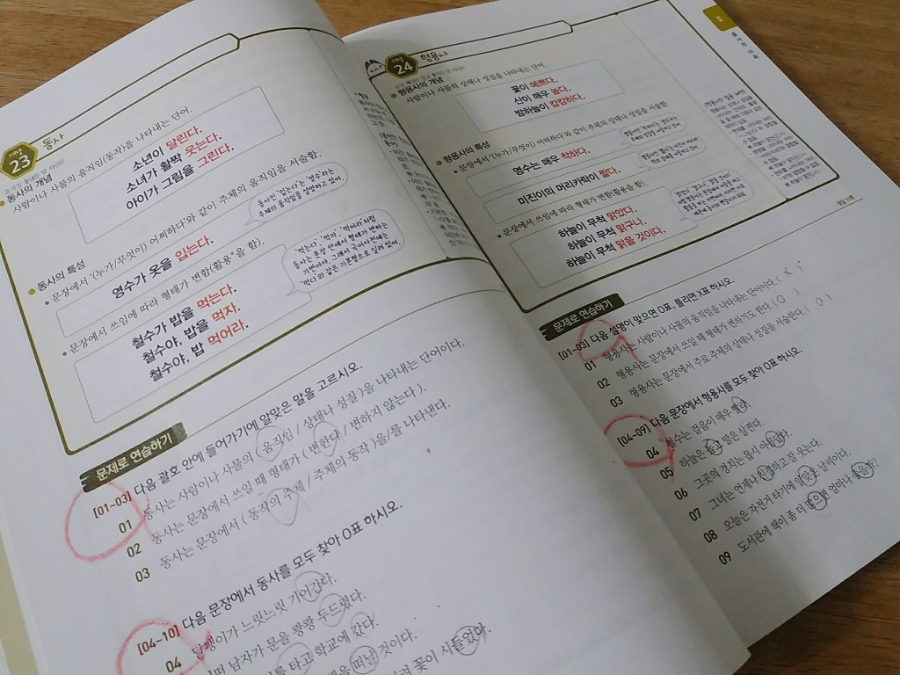 23 동사
동사의 개념
사람이나 사물의 움직임(동작)을 나타내는 단어.
소년이 달린다.
소녀가 활짝 웃는다.
아이가 그림을 그린다.
동사의 특성
• 문장에서 '(누가/무엇이) 어찌하다'와 같이 주체의 움직임을 서술함.
영수가 옷을 입는다.
동사인 '입는다'는 '영수'라는
주체의 움직임을 설명하고 있어.
• 문장에서 쓰임에 따라 형태가 변함(활용*을 함).
철수가 밥을 먹는다.
철수야, 밥을 먹자.
철수야, 밥 먹어라.
'먹는다', '먹자', '먹어라'처럼
동사는 문장 안에서 형태가 변하는
가변어야. 그래서 국어사전에는
'먹다'와 같은 기본형으로 실려 있어.
문제로 연습하기
[01~03] 다음 괄호 안에 들어가기에 알맞은 말을 고르시오.
01 동사는 사람이나 사물의 ( 움직임 / 상태나 성질 )을 나타내는 단어이다.
02 동사는 문장에서 쓰일 때 형태가 ( 변한다 / 변하지 않는다 ).
03 동사는 문장에서 ( 동작의 주체 / 주체의 동작 )을/를 나타낸다.
[04~10] 다음 문장에서 동사를 모두 찾아 O표 하시오.
04 달팽이가 느릿느릿 기어간다.
남자가 문을 쾅쾅 두드렸다.
타고 학교에 갔다.
떠날 것이다.
꽃이 시들었다.
24 형용사
형용사의 개념
사람이나 사물의 상태나 성질을 나타내는 단어.
꽃이 예쁘다.
산이 매우 높다.
밤하늘이 캄캄하다.
형용사의 특성
• 문장에서 '(누가/무엇이) 어떠하다'와 같이 주체의 상태나 성질을 서술함.
영수는 매우 착하다.
미진이의 머리카락이 짧다.
• 문장에서 쓰임에 따라 형태가 변함(활용을 함).
하늘이 무척 맑았다.
하늘이 무척 맑구나.
하늘이 무척 맑을 것이다.
문제로 연습하기
[01~03] 다음 설명이 맞으면 O표, 틀리면 X표 하시오.
01 형용사는 사람이나 사물의 움직임을 나타내는 단어이다. ( X )
02 형용사는 문장에서 쓰일 때 형태가 변하기도 한다. ( O )
03 형용사는 문장에서 주로 주체의 상태나 성질을 서술한다. ( O )
[04~09] 다음 문장에서 형용사를 모두 찾아 O표 하시오.
04 철수는 걸음이 매우 빨랐다.
05 하늘은 높고 말은 살찐다.
06 그곳의 경치는 몹시 아름답다.
07 그녀는 언제나 친절하고 잘 웃는다.
08 오늘은 자전거 타기에 알맞은 날씨이다.
09 도서관에 책이 좀 더 많으면 얼마나 좋을까?